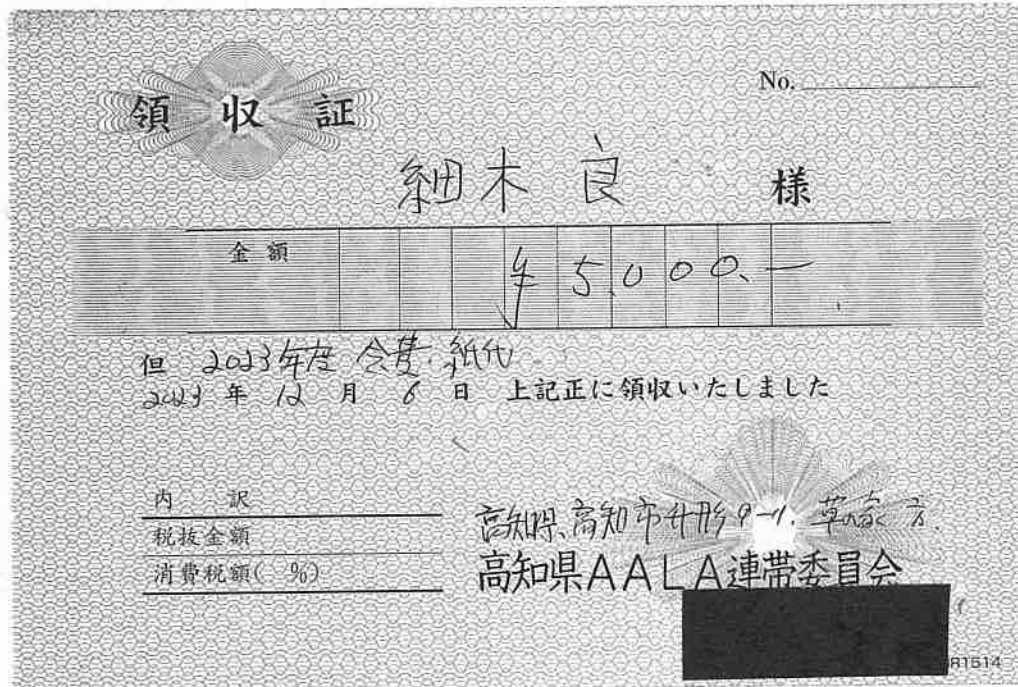 No.
領収証
細木 良 様
金額 ¥5,000.-
但 2023年度 会費・紙代
2023年 12月 6日 上記正に領収いたしました
内 訳
税抜金額
消費税額( %)
高知県高知市升形9-11. 草の家 方
高知県AALA連帯委員会
R1514